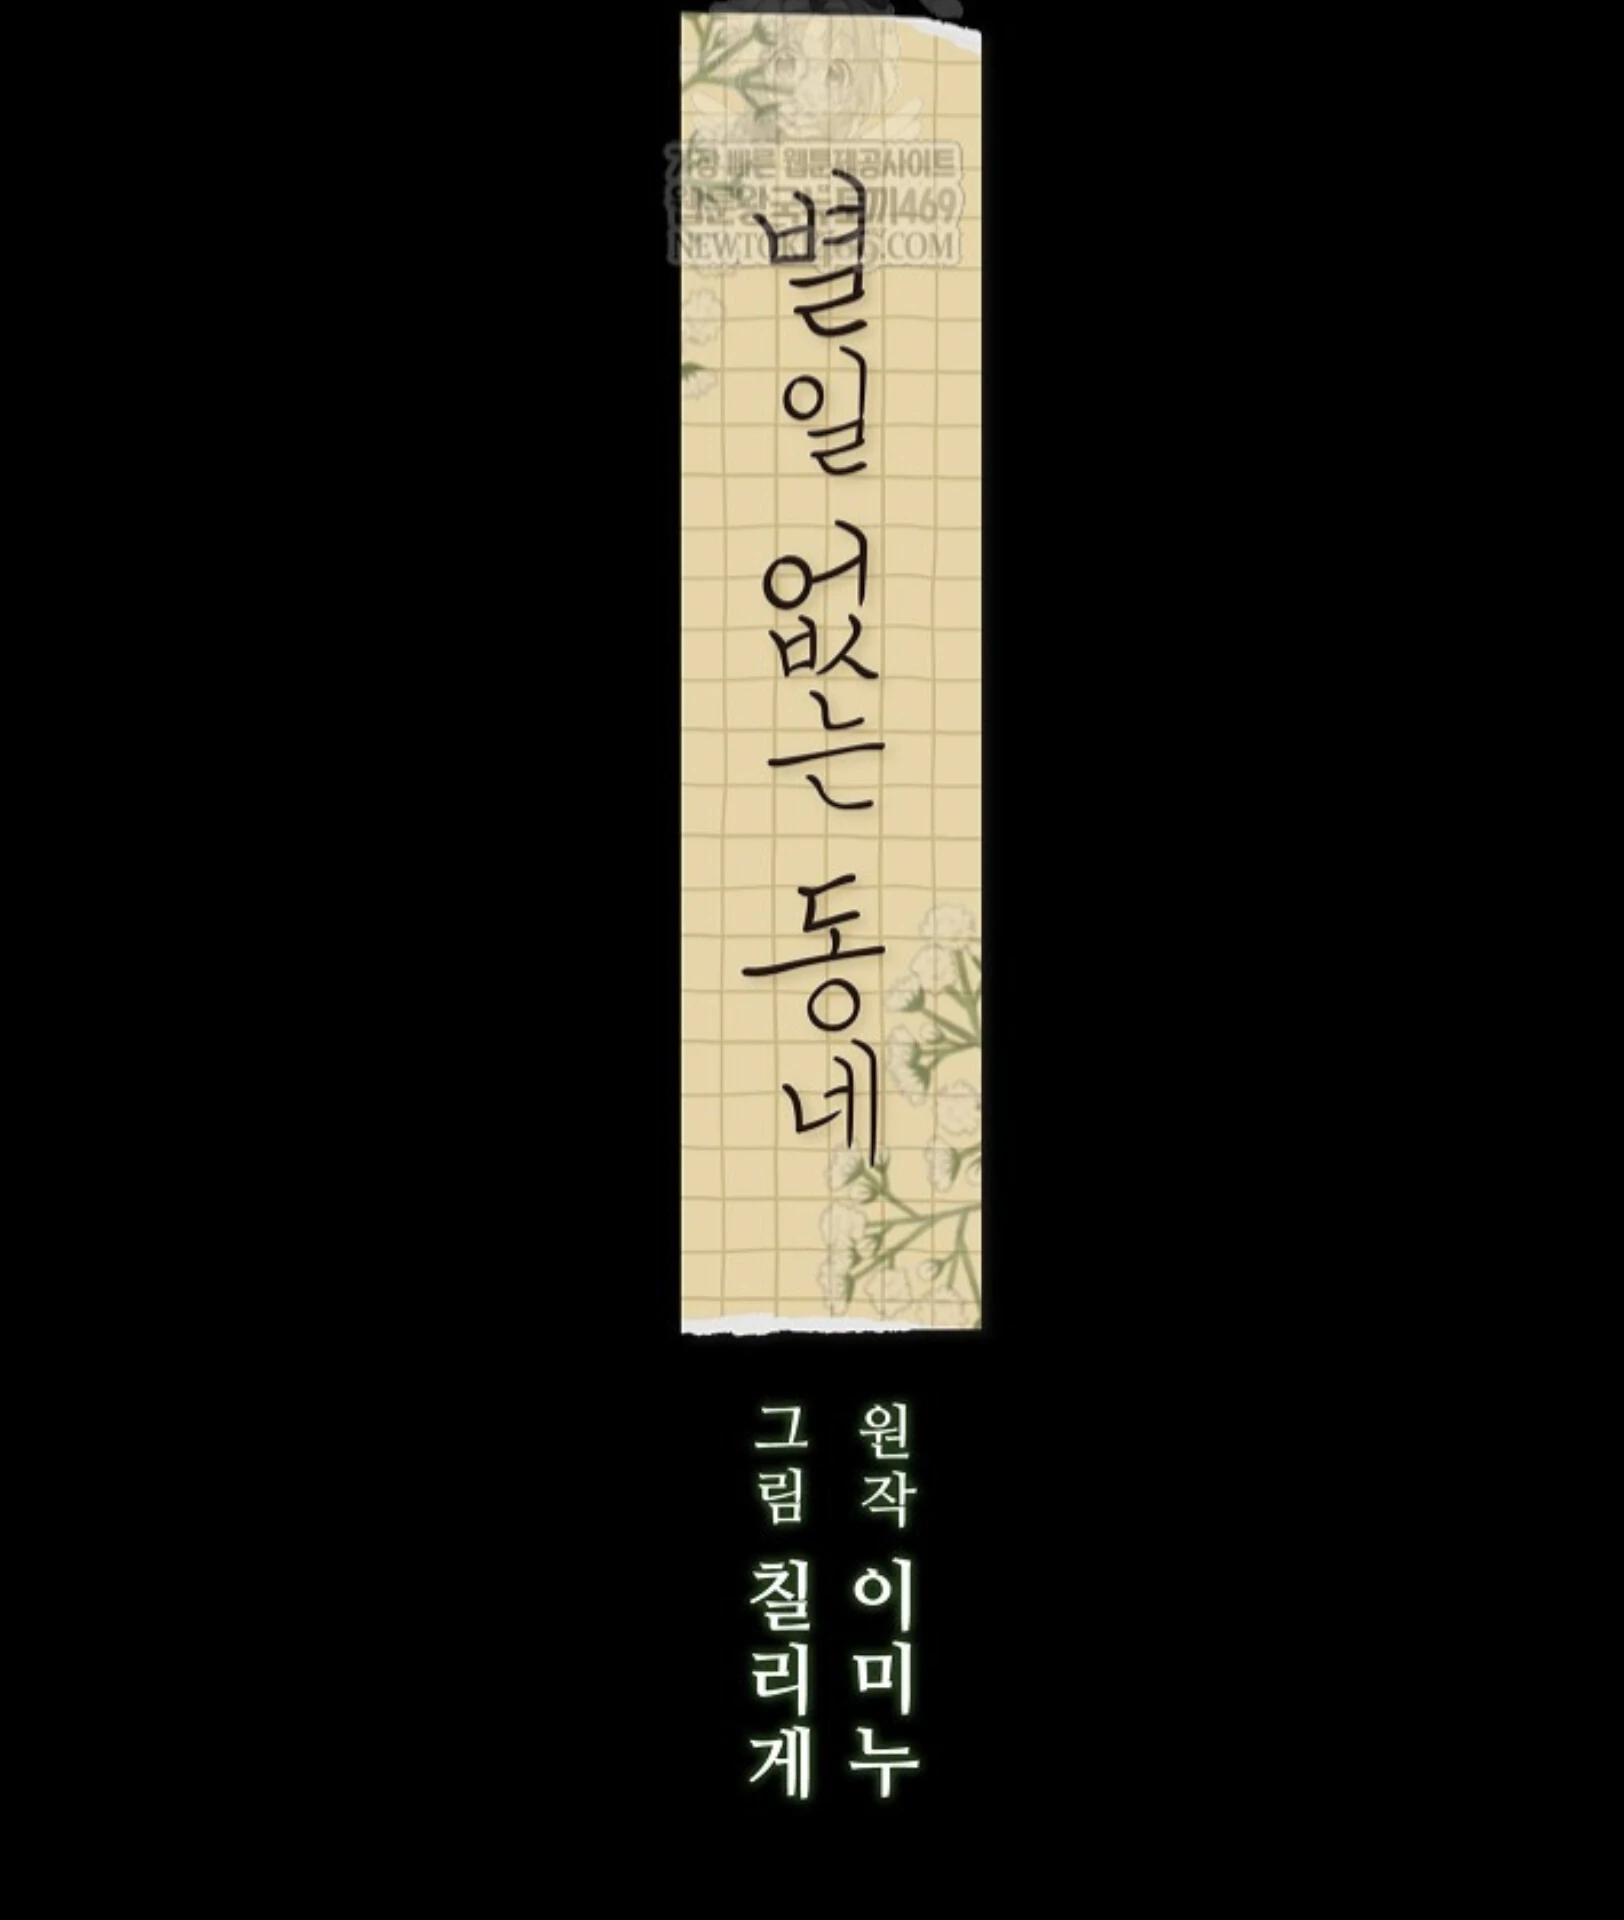 가장 빠른 웹툰제공사이트
웹툰왕국뉴토끼469
별일 없는 동네
원작 이미누
그림 칠리게